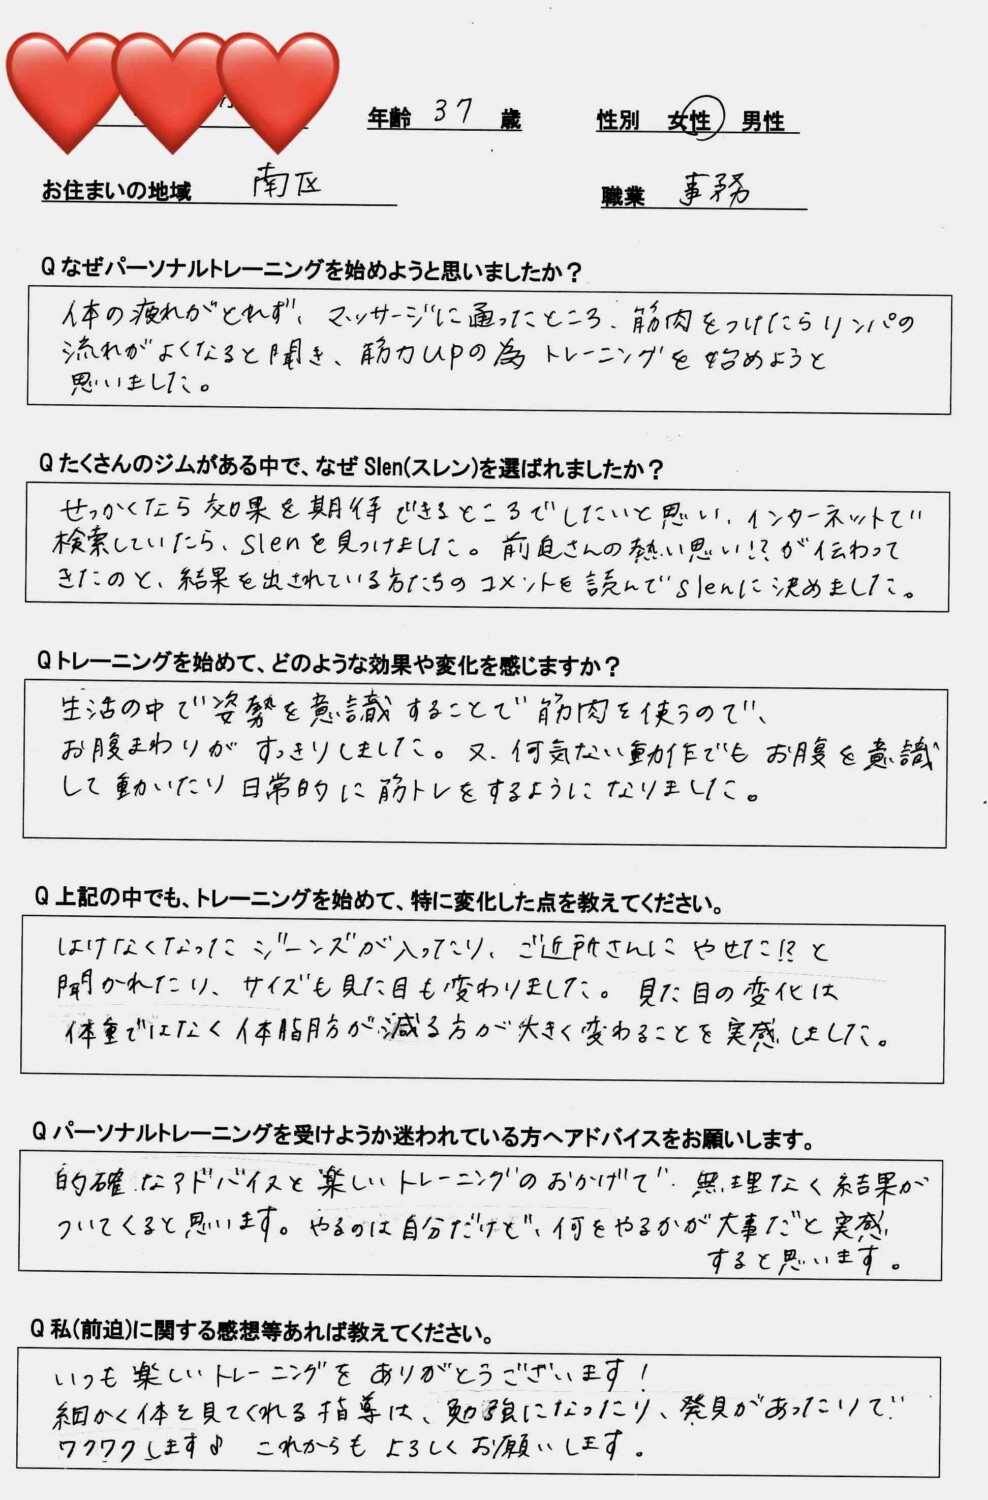 年齢 37 歳 性別 女性 男性
お住まいの地域 南区 職業 事務
Q なぜパーソナルトレーニングを始めようと思いましたか?
体の疲れがとれず、マッサージに通ったところ、筋肉をつけたらリンパの
流れがよくなると聞き、筋力UPの為トレーニングを始めようと
思いました。
Q たくさんのジムがある中で、なぜ Slen(スレン)を選ばれましたか?
せっかくなら効果を期待できるところでしたいと思い、インターネットで
検索していたら、slenを見つけました。前迫さんの熱い思い!?が伝わって
きたのと、結果を出されている方たちのコメントを読んでslenに決めました。
Q トレーニングを始めて、どのような効果や変化を感じますか?
生活の中で姿勢を意識することで筋肉を使うので、
お腹まわりがすっきりしました。又、何気ない動作でもお腹を意識
して動いたり日常的に筋トレをするようになりました。
Q 上記の中でも、トレーニングを始めて、特に変化した点を教えてください。
はけなくなったジーンズが入ったり、ご近所さんにやせた!?と
聞かれたり、サイズも見た目も変わりました。見た目の変化は
体重ではなく体脂肪が減る方が大きく変わることを実感しました。
Q パーソナルトレーニングを受けようか迷われている方へアドバイスをお願いします。
的確なアドバイスと楽しいトレーニングのおかげで、無理なく結果が
ついてくると思います。やるのは自分だけど、何をやるかが大事だと実感
すると思います。
Q 私(前迫)に関する感想等あれば教えてください。
いつも楽しいトレーニングをありがとうございます!
細かく体を見てくれる指導は、勉強になったり、発見があったりで
ワクワクします♪ これからもよろしくお願いします。